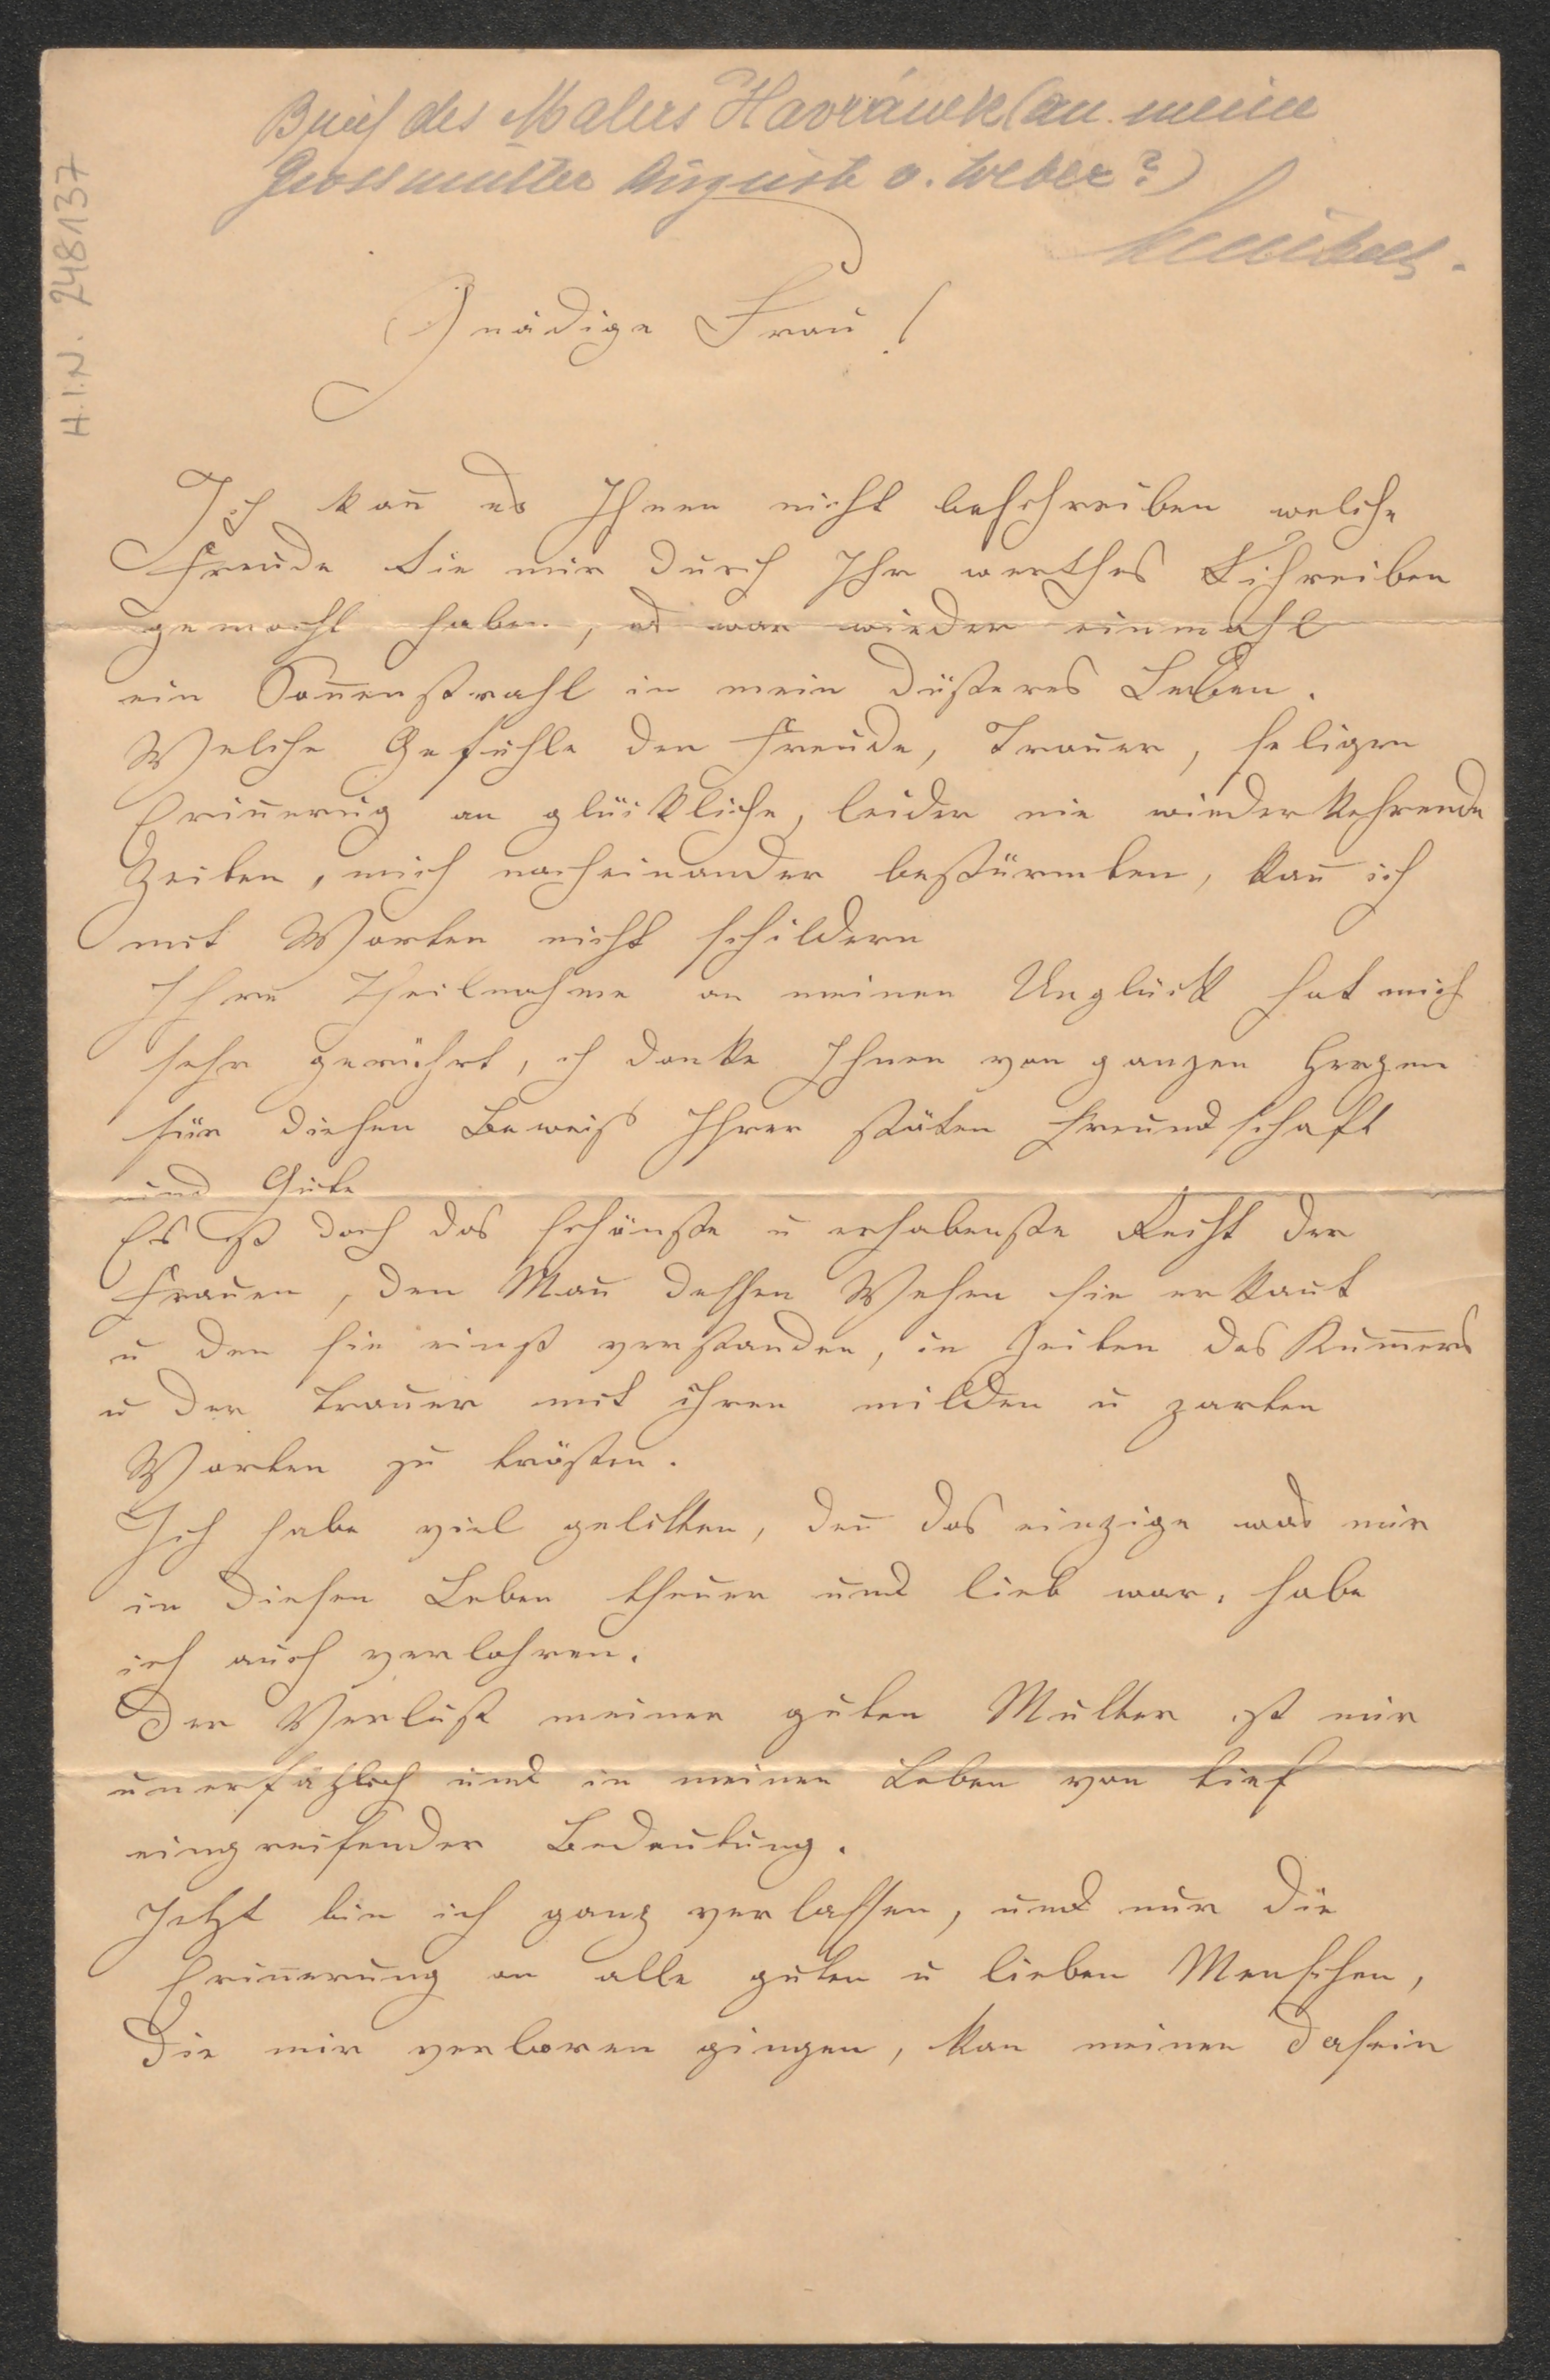 Brief des Malers Havránek (an meine
Grossmutter Auguste v. Weber?)
H.I.N. 248137
Gnädige Frau!
Ich kan̄ es Ihnen nicht beschreiben welche
Freude Sie mir durch Ihr werthes Schreiben
gemacht haben, es war wieder einmahl
ein Son̄enstrahl in mein düsteres Leben.
Welche Gefühle der Freude, Trauer, seligen
Erin̄erug an glückliche, leider nie wiederkehrende
Zeiten, mich nacheinander bestürmten, kan̄ ich
mit Worten nicht schildern
Ihre Theilnahme an meinen Unglück hat mich
sehr gerührt, ich danke Ihnen von ganzen Herzen
für diesen Beweiß Ihrer stäten Freundschaft
und Güte
Es ist doch das schönste u erhabenste Recht der
Frauen, den Man̄ dessen Wesen sie erkant
u den sie einst verstanden, in Zeiten des Kum̄ers
u der Trauer mit ihren milden u zarten
Worten zu trösten.
Ich habe viel gelitten, den̄ das einzige was mir
in diesen Leben theuer und lieb war, habe
ich auch verlohren.
Der Verlust meiner guten Mutter ist mir
unersätzlich und in meinen Leben von tief
eingreifender Bedeutung.
Jetzt bin ich ganz verlassen, und nur die
Erin̄erung an alle guten u lieben Menschen,
die mir verloren gingen, kan meinen Dasein